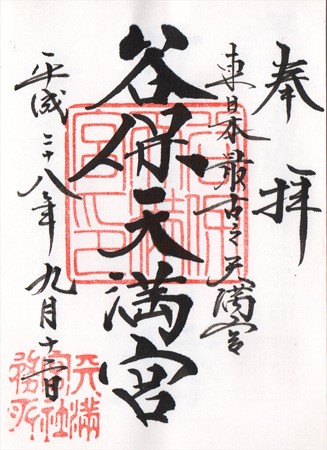 奉拝
東日本最古之天満宮
谷保天満宮
平成二十八年九月十二日
谷保天満宮印
天満宮社務所